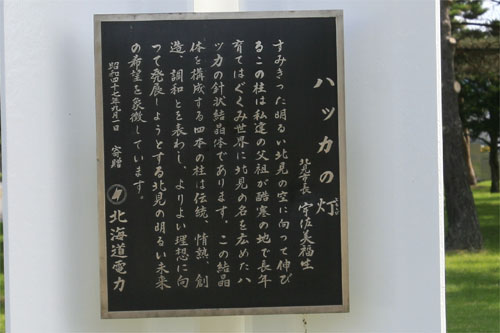 ハッカの灯
北見市長 宇佐美福生
すみきった明るい北見の空に向って伸び
るこの柱は私達の父祖が酷寒の地で長年
育てはぐくみ世界に北見の名を広めたハ
ッカの針状結晶体であります。この結晶
体を構成する四本の柱は伝統、情熱、創
造、調和とを表わし、よりよい理想に向
って発展しようとする北見の明るい未来
の希望を象徴しています。
昭和四十七年九月一日 寄贈
北海道電力